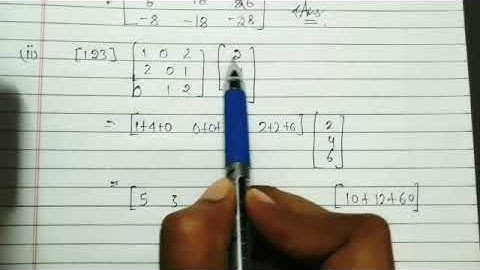 -8 -18 -28 Ans.
(ii) [1 2 3] [1 0 2 [2
2 0 1
0 1 2]
= [1+4+0 0+0+ 2+2+6] [2
4
6]
= [5 3 [10+12+60]